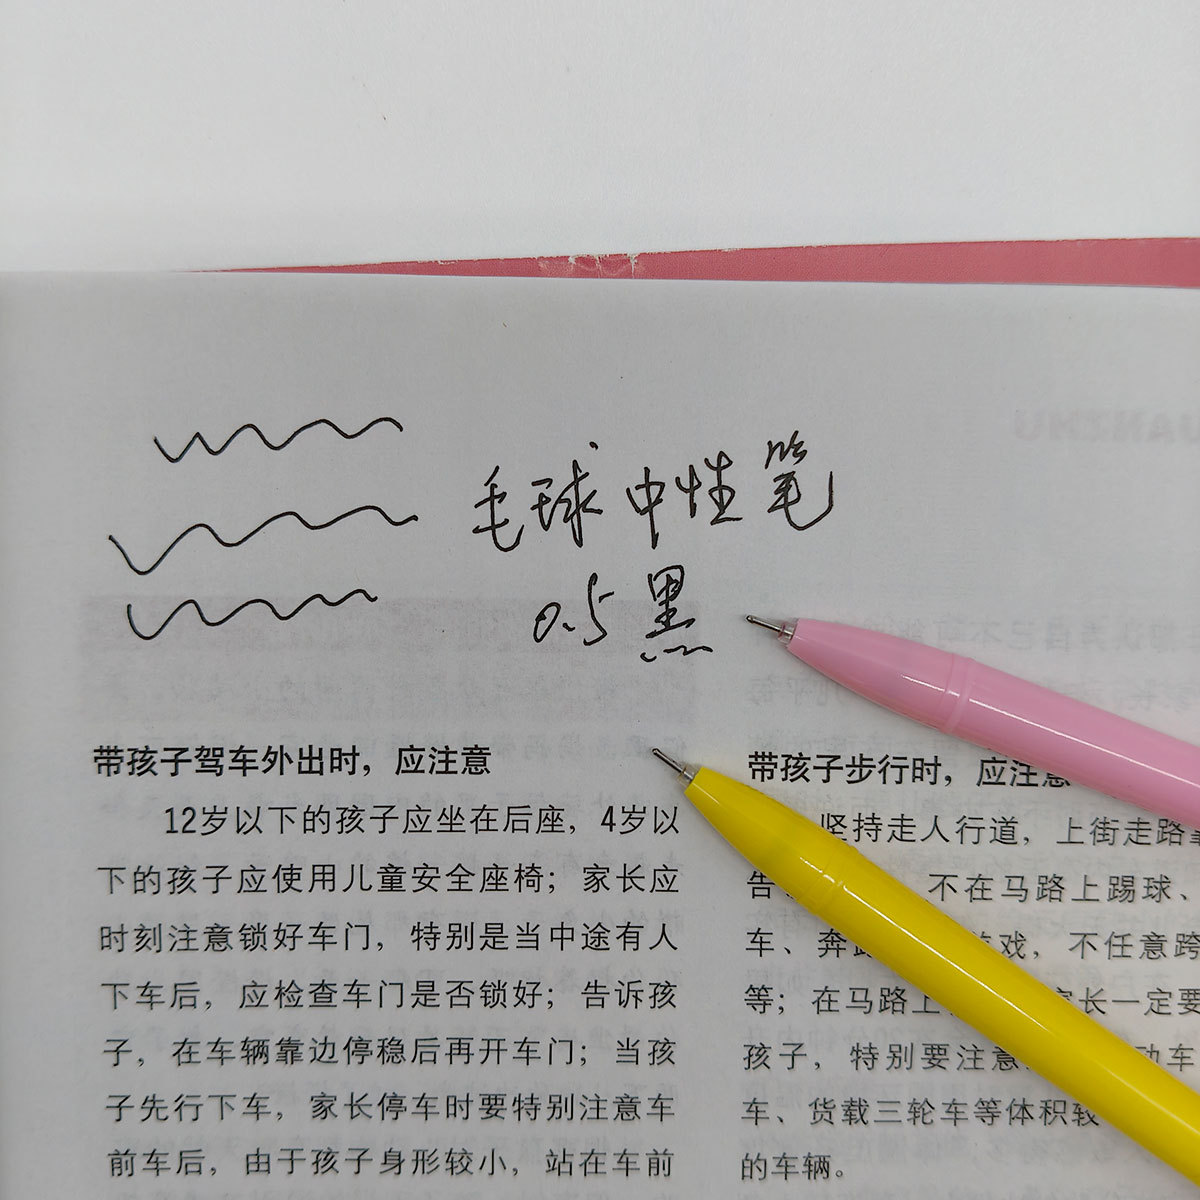 毛球中性笔
0.5黑
带孩子驾车外出时，应注意
12岁以下的孩子应坐在后座，4岁以
下的孩子应使用儿童安全座椅；家长应
时刻注意锁好车门，特别是当中途有人
下车后，应检查车门是否锁好；告诉孩
子，在车辆靠边停稳后再开车门；当孩
子先行下车，家长停车时要特别注意车
前车后，由于孩子身形较小，站在车前
带孩子步行时，应注意
坚持走人行道，上街走路靠
告 不在马路上踢球、
车、奔 游戏，不任意跨
等；在马路上 家长一定要
孩子，特别要注意 动车
车、货载三轮车等体积较
的车辆。